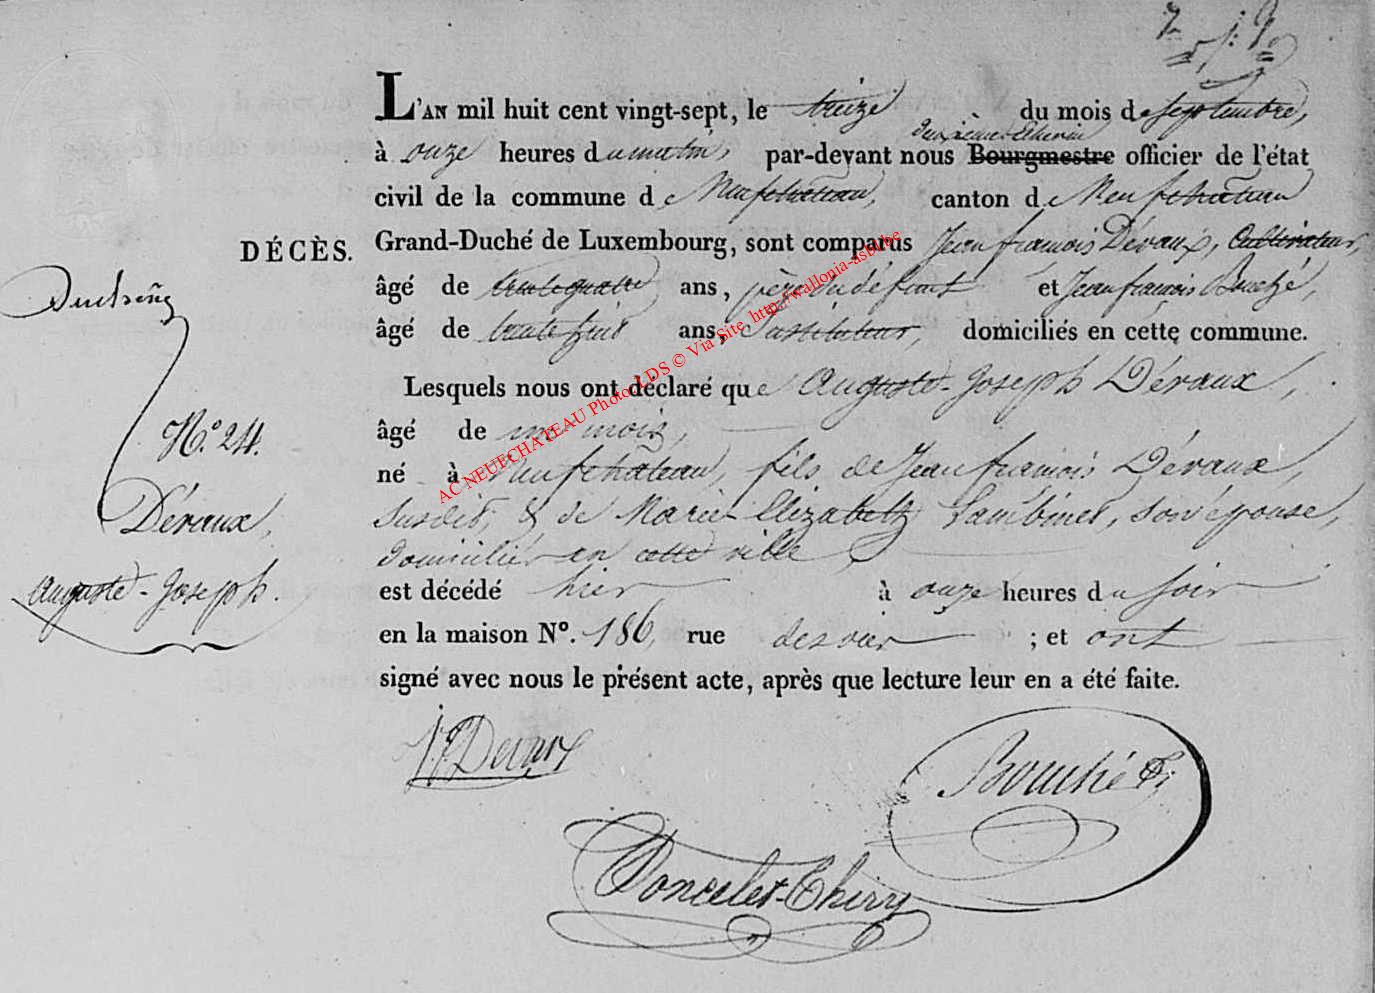 L'AN mil huit cent vingt-sept, le treize du mois de septembre,
deuxième Echevin
à onze heures du matin, par-devant nous Bourgmestre officier de l'état
civil de la commune de Neufchateau, canton de Neufchateau
DÉCÈS. Grand-Duché de Luxembourg, sont comparus Jean françois Dévaux, Cultivateur,
âgé de trente quatre ans, père du défunt et Jean françois Bouché,
âgé de trente huit ans, Instituteur, domiciliés en cette commune.
Lesquels nous ont déclaré que Auguste-Joseph Dévaux,
âgé de un mois,
né à Neufchateau, fils de Jean françois Dévaux,
susdit, & de Marie-Elizabeth Lambinet, son épouse,
domiciliés en cette ville
est décédé hier à onze heures du soir
en la maison N°. 186, rue ; et ont
signé avec nous le présent acte, après que lecture leur en a été faite.
N.° 24.
Dévaux,
Auguste-Joseph.
J f Devaux
Bouché
Poncelet-Thiry
AC NEUFCHATEAU Photo LDS © Via Site http://wallonia-asbl.be